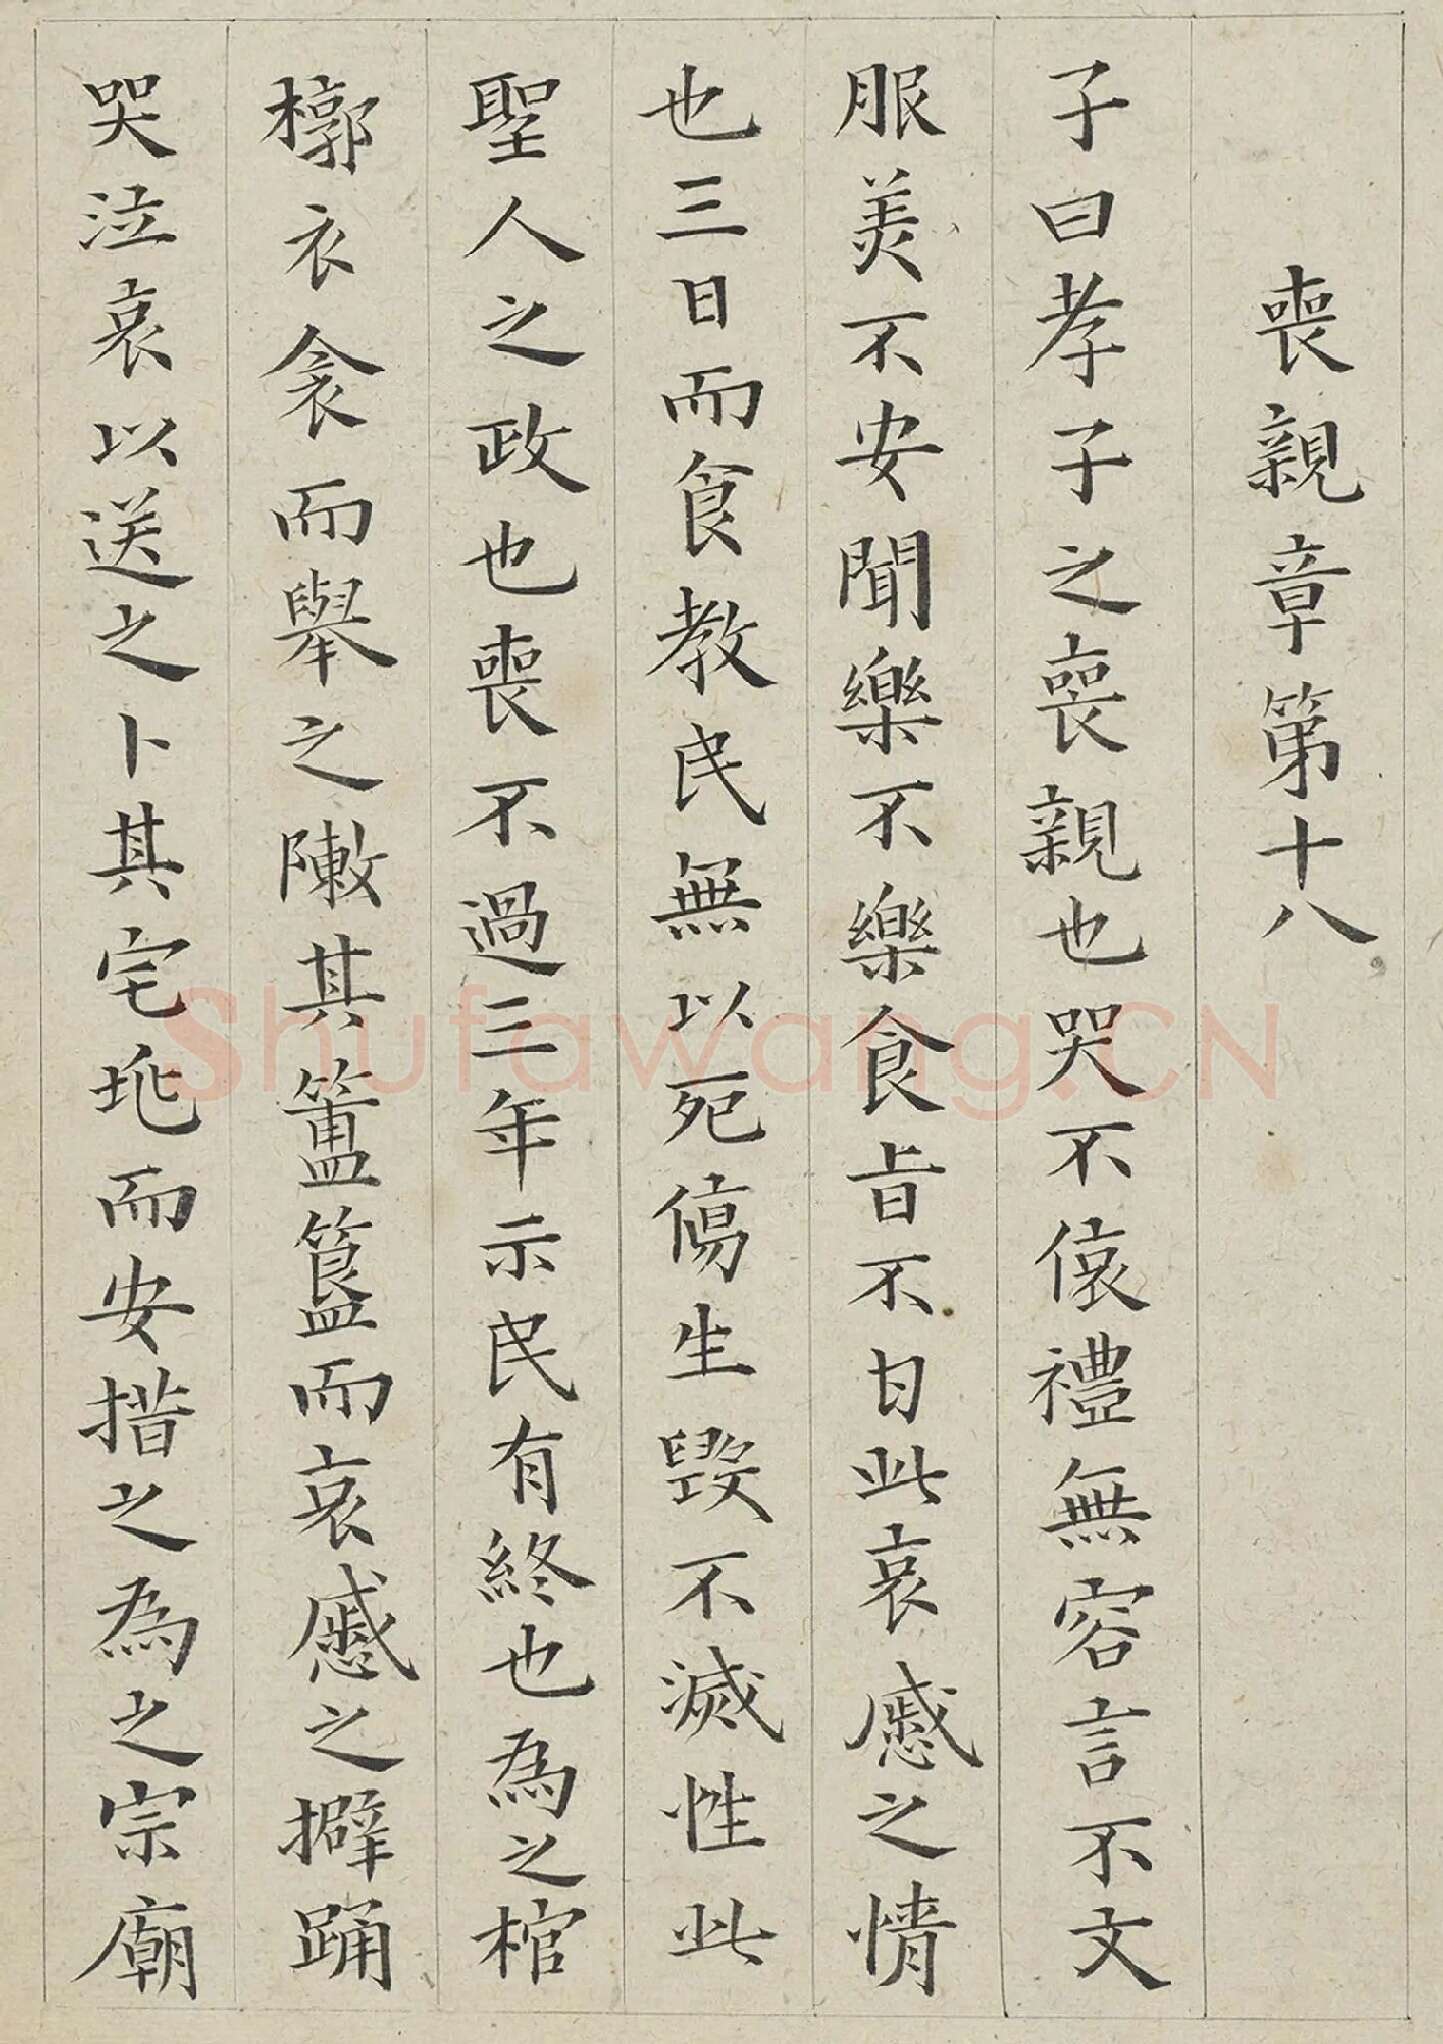 喪親章第十八
子曰孝子之喪親也哭不偯禮無容言不文
服美不安聞樂不樂食旨不甘此哀慼之情
也三日而食教民無以死傷生毀不滅性此
聖人之政也喪不過三年示民有終也為之棺
槨衣衾而舉之陳其簠簋而哀慼之擗踊
哭泣哀以送之卜其宅兆而安措之為之宗廟
Shufawang.CN